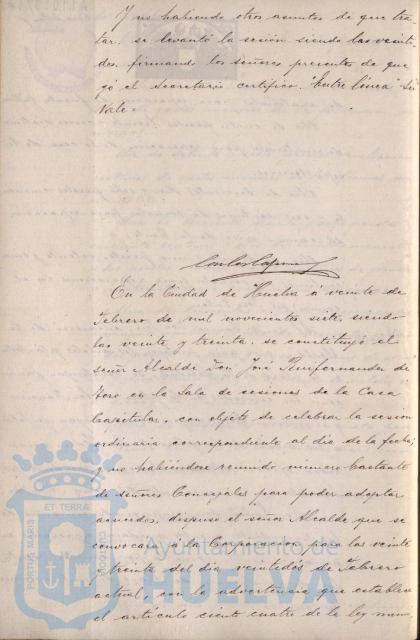 Y no habiendo otros asuntos de que tra
tar, se levantó la sesión siendo las veinti
dos, firmando los señores presentes de que
yó el Secretario certifico. "Entre línea"
Vale.
En la Ciudad de Huelva á veinte de
Febrero de mil novecientos siete, siendo
las veinte y treinta, se constituyó el
señor Alcalde Don José
Toro en la Sala de sesiones de la Casa
Capitular, con objeto de celebrar la sesión
ordinaria correspondiente al dia de la fecha;
y no habiéndose reunido número bastante
de señores Concejales para poder adoptar
acuerdos, dispuso el señor Alcalde que se
convocara á la Corporación para las veinte
y treinta del dia veintidós de Febrero
actual, con la advertencia que establece
el artículo ciento cuatro de la ley muni
ET TERRÆ
PORTUS MARIS
CUSTODIA
Ayuntamiento de
HUELVA